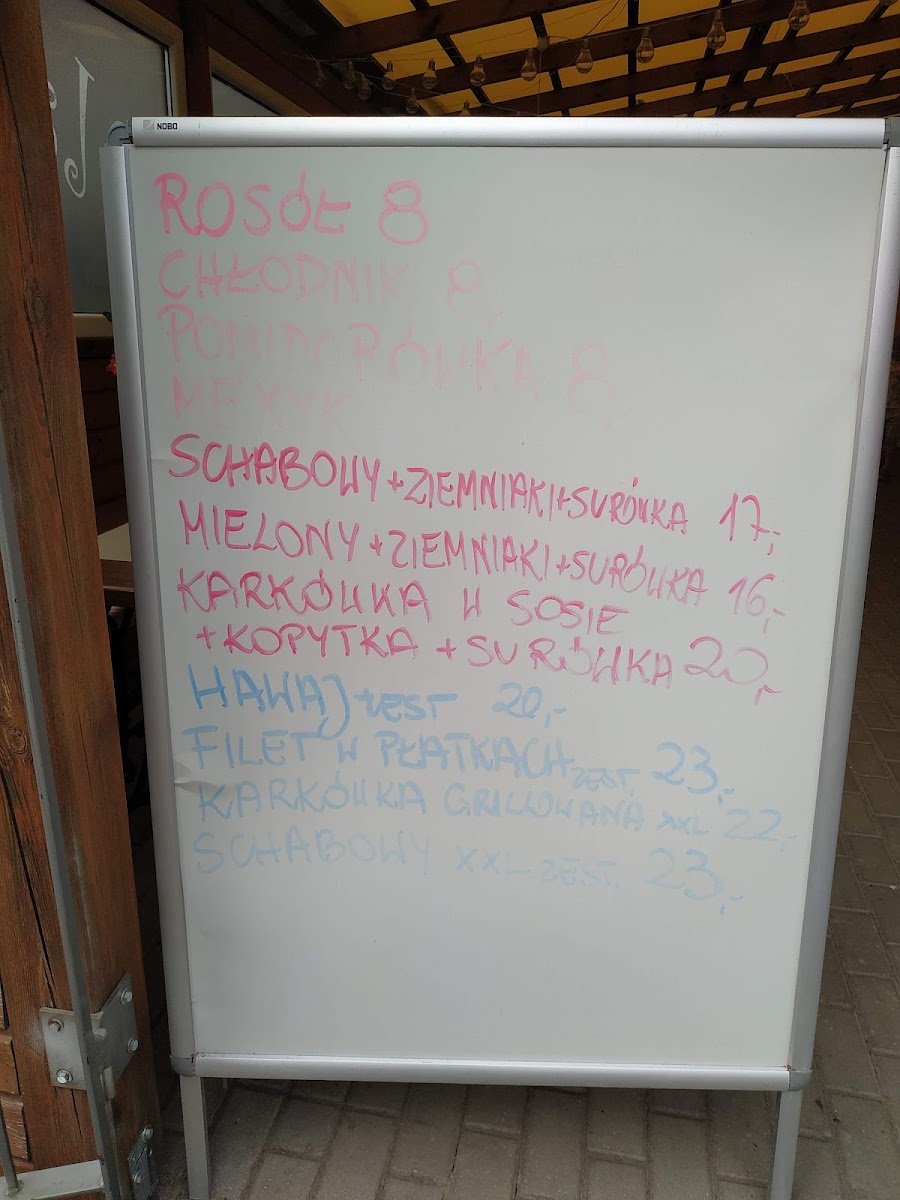 NOBO
ROSÓŁ 8
CHŁODNIK 8,
POMIDORÓWKA 8
MEXYK
SCHABOWY+ZIEMNIAKI+SURÓWKA 17,-
MIELONY+ZIEMNIAKI+SURÓWKA 16,-
KARKÓWKA W SOSIE
+KOPYTKA+SURÓWKA 20,-
HAWAJ ZEST 20,-
FILET W PŁATKACH ZEST. 23,-
KARKÓWKA GRILLOWANA XXL 22,-
SCHABOWY XXL ZEST. 23,-